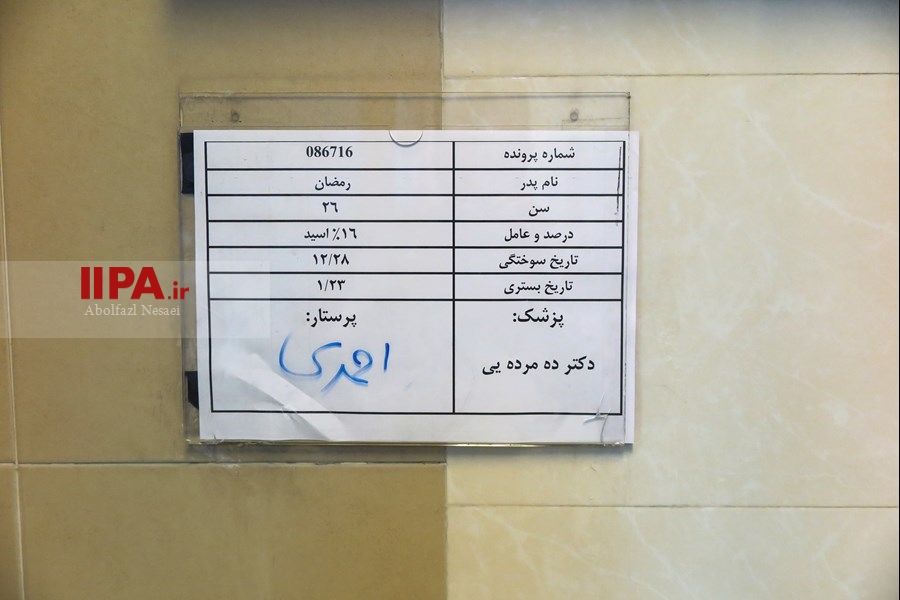 شماره پرونده 086716
نام پدر رمضان
سن ٢٦
درصد و عامل ١٦٪ اسید
تاریخ سوختگی ١٢/٢٨
تاریخ بستری ١/٢٣
پزشک: پرستار:
دکتر ده مرده یی احمدی
IIPA.ir
Abolfazl Nesaei